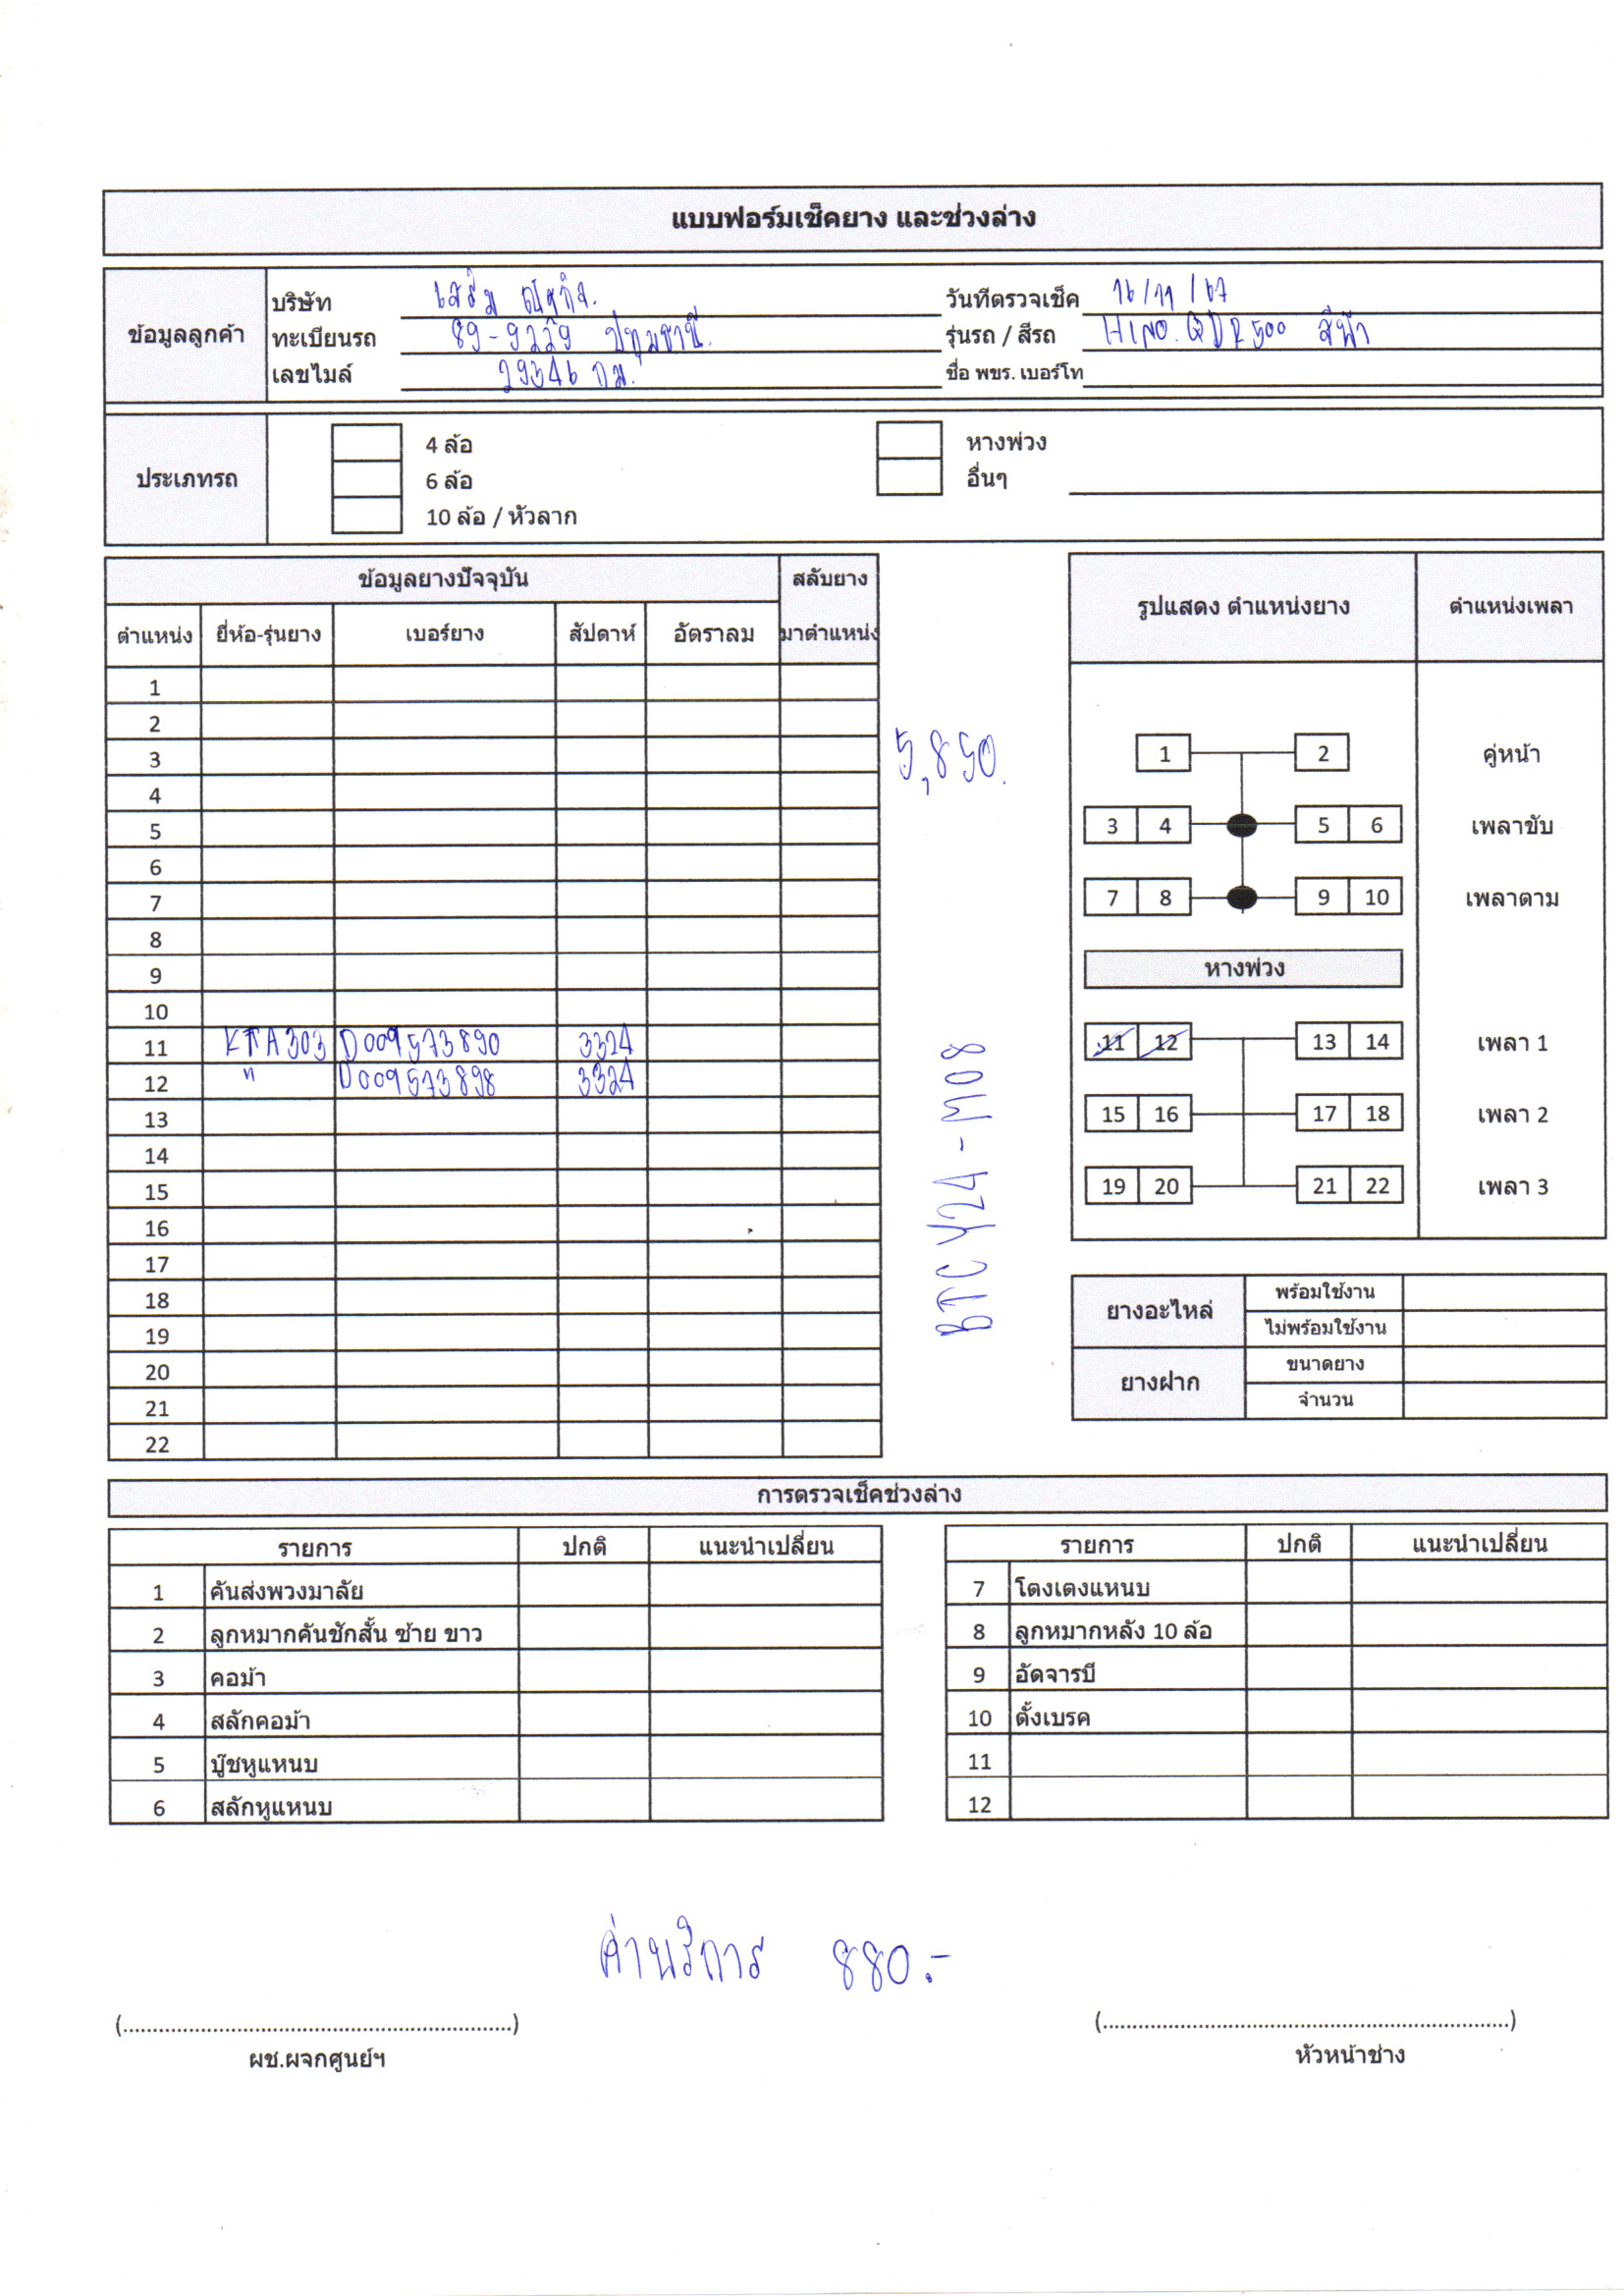 แบบฟอร์มเช็คยาง และช่วงล่าง
ข้อมูลลูกค้า
บริษัท เสริม
วันที่ตรวจเช็ค 16/11/67
ทะเบียนรถ 89-9229 ปทุมธานี
รุ่นรถ / สีรถ HINO. 500 สีฟ้า
เลขไมล์ 29346 กม.
ชื่อ พขร. เบอร์โท
ประเภทรถ
4 ล้อ
หางพ่วง
6 ล้อ
อื่นๆ
10 ล้อ / หัวลาก
ข้อมูลยางปัจจุบัน สลับยาง
ตำแหน่ง ยี่ห้อ-รุ่นยาง เบอร์ยาง สัปดาห์ อัตราลม มาตำแหน่ง
1
2
3
4
5
6
7
8
9
10
11 D009573890 3324
12 " D009573898 3324
13
14
15
16
17
18
19
20
21
22
5,850.
BTC Y24-M08
รูปแสดง ตำแหน่งยาง ตำแหน่งเพลา
1 2 คู่หน้า
3 4 5 6 เพลาขับ
7 8 9 10 เพลาตาม
หางพ่วง
11 12 13 14 เพลา 1
15 16 17 18 เพลา 2
19 20 21 22 เพลา 3
ยางอะไหล่ พร้อมใช้งาน
ไม่พร้อมใช้งาน
ยางฝาก ขนาดยาง
จำนวน
การตรวจเช็คช่วงล่าง
รายการ ปกติ แนะนำเปลี่ยน
1 คันส่งพวงมาลัย
2 ลูกหมากคันชักสั้น ซ้าย ขาว
3 คอม้า
4 สลักคอม้า
5 บู๊ชหูแหนบ
6 สลักหูแหนบ
รายการ ปกติ แนะนำเปลี่ยน
7 โตงเตงแหนบ
8 ลูกหมากหลัง 10 ล้อ
9 อัดจารบี
10 ตั้งเบรค
11
12
ค่าบริการ 880.-
(..................................................................)
ผช.ผจกศูนย์ฯ
(..................................................................)
หัวหน้าช่าง